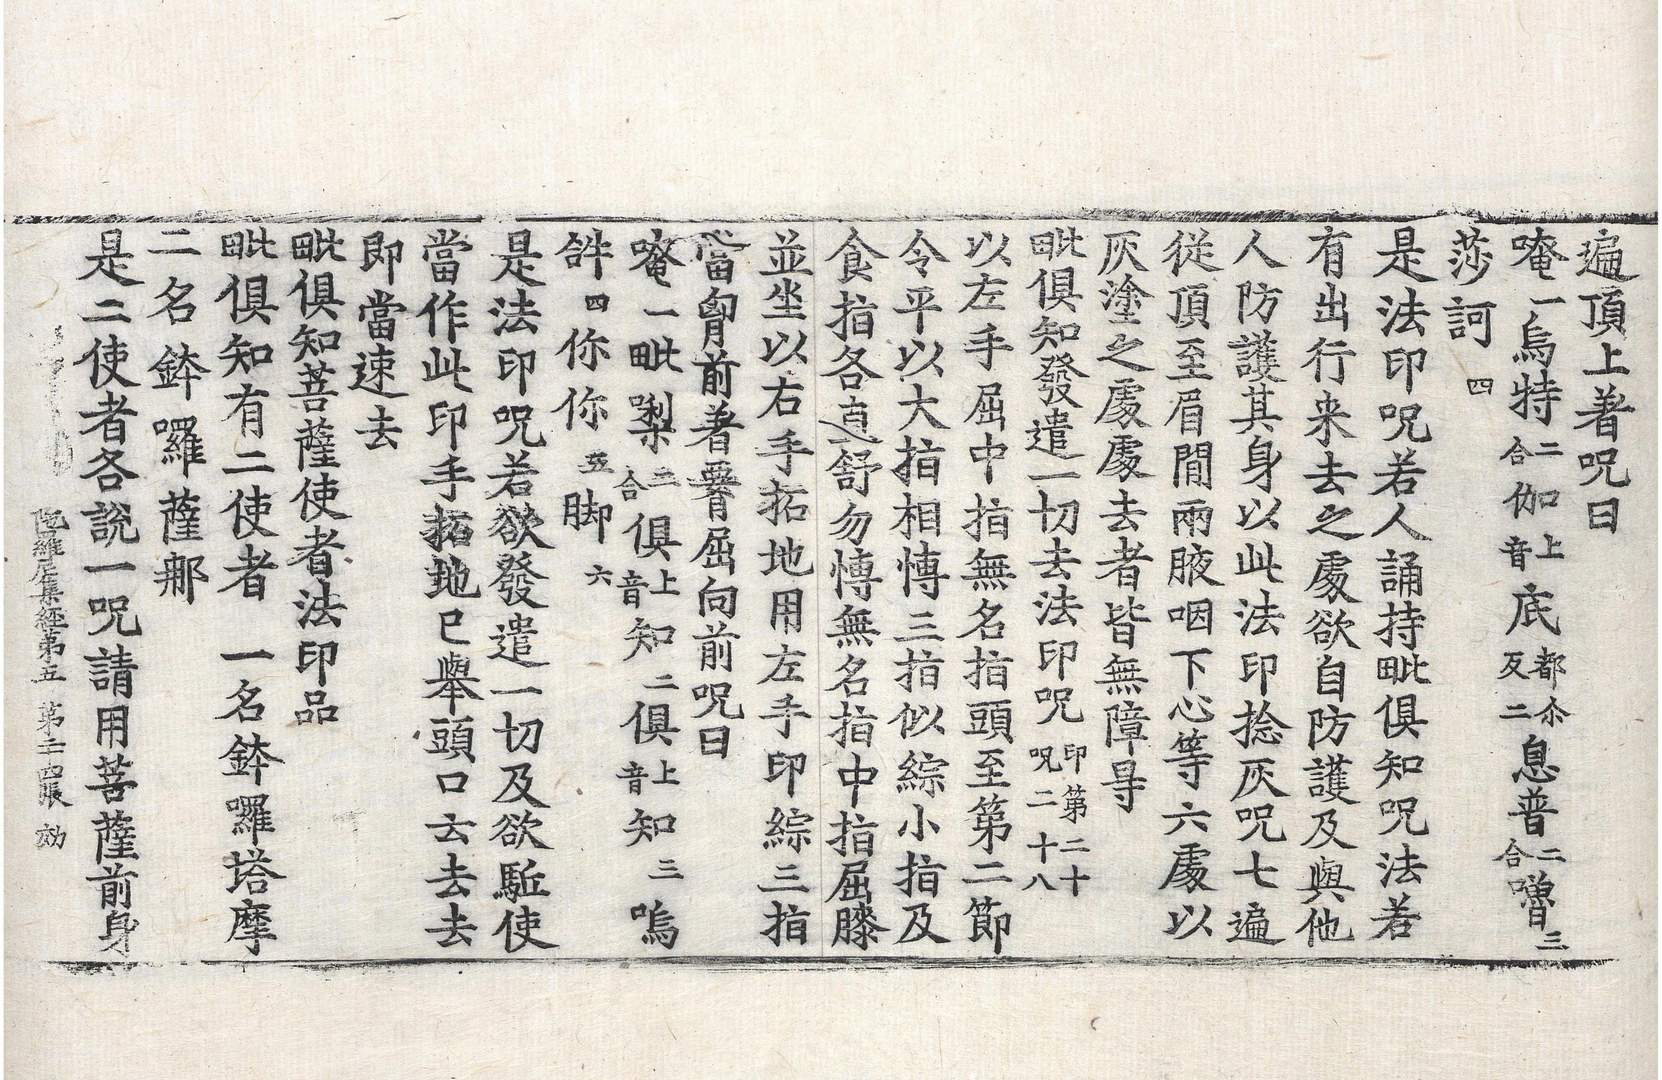 遍頂上著呪曰
唵一烏特二合伽上音底都尒反二息普二合噜三
莎訶四
是法印呪若人誦持毗俱知呪法若
有出行来去之處欲自防護及與他
人防護其身以此法印捻灰呪七遍
從頂至眉閒兩腋咽下心等六處以
灰塗之處處去者皆無障㝵
毗俱知發遣一切去法印呪印第二十呪二十八
以左手屈中指無名指頭至第二節
令平以大指相愽三指似綜小指及
食指各直舒勿愽無名指中指屈膝
並坐以右手拓地用左手印綜三指
當胷前著臂屈向前呪曰
唵一毗㗚二合俱上音知二俱上音知三嗚
𤙖四你你五脚六
是法印呪若欲發遣一切及欲駈使
當作此印手拓地已舉頭口云去去
即當速去
毗俱知菩薩使者法印品
毗俱知有二使者 一名鉢囉塔摩
二名鉢囉薩那
是二使者各說一呪請用菩薩前身
陁羅尼集經第五 第二十四張 効